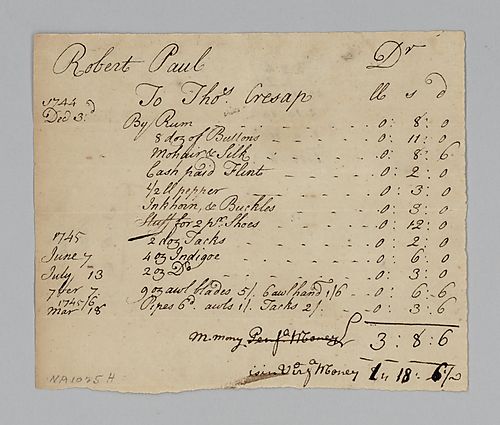 Robert Paul Dr
1744 To Thos. Cresap ll s d
Decd 3d By Rum 0: 8: 0
8 doz of Buttons 0: 11: 0
Mohair & Silk 0: 8: 6
Cash paid Flint 0: 2: 0
1/2 ll pepper 0: 3: 0
Inkhoin, & Buckles 0: 3: 0
Stuff for 2 pr. Shoes 0: 12: 0
1745 2 doz Tacks 0: 2: 0
June 7 4 oz Indigoe 0: 6: 0
July 13 2 oz Do 0: 3: 0
7ber 7 9 oz awl blades 5/. 6 awl hand 1/6 0: 6: 6
1745/6
Mar 18 Pipes 6d. awls 1/. Tacks 2/. 0: 3: 6
M. mony Money 3: 8: 6
is in Virga Money 1 „ 18: 6 1/2
NA1025H